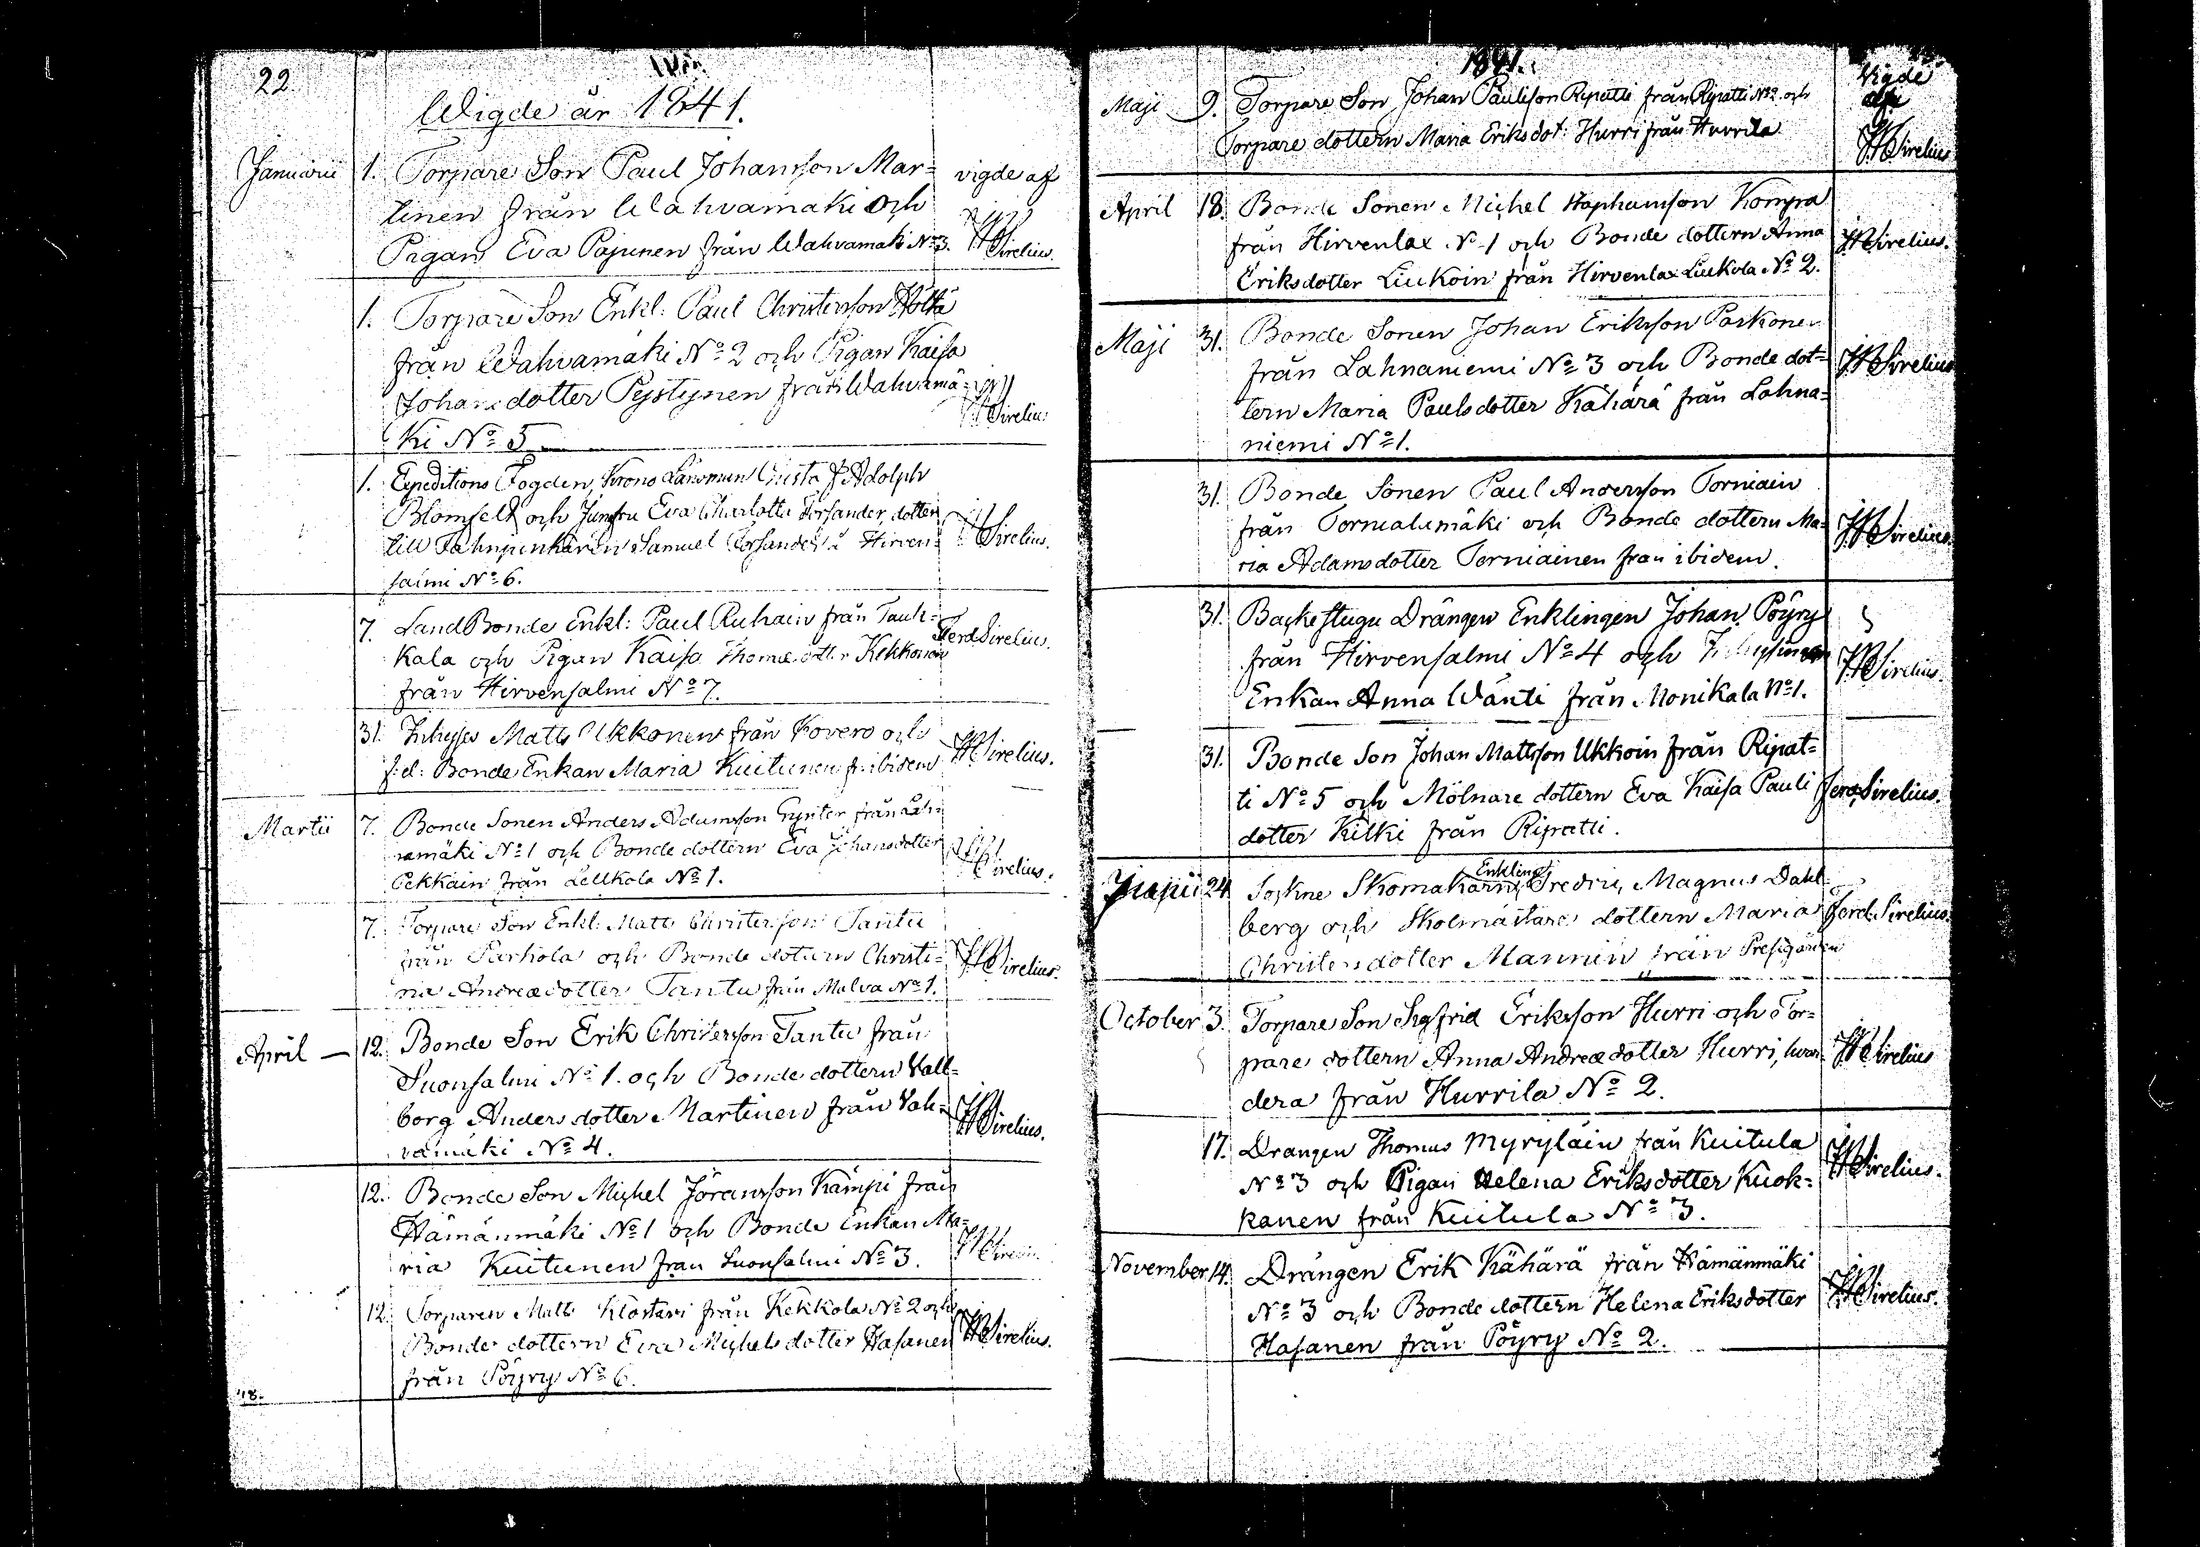 22.
Wigde år 1841.
Januarii 1. Torpare Son Paul Johansson Mar=
tinen från Wahvamäki och
Pigan Eva Pajunen från Wahvamäki No 3.
vigde af
Sirelius.
1. Torpare Son Enkl: Paul Christersson Höltä
från Wahvamäki No 2 och Pigan Kaisa
Johansdotter Pystynen från Wahvamä=
ki No 5
Sirelius.
1. Expeditions Fogden, Krono Länsman Gustaf Adolph
Blomfelt och Jumfru Eva Charlotta Forsander, dotter
till Fahnjunkaren Samuel Forsander i Hirven=
salmi No 6.
Sirelius.
7. LandBonde Enkl: Paul Ruhain från Tauk=
kala och Pigan Kaisa Thomædotter Kekkonen
från Hirvensalmi No 7.
Ferd. Sirelius.
31. Inhyses Matts Ukkonen från Kovero och
f:d: Bonde Enkan Maria Kuitunen fr: ibidem
Sirelius.
Martii 7. Bonde Sonen Anders Adamsson Gynter från
mäki No 1 och Bonde dottern Eva Johansdotter
Pekkain från Lellkola No 1.
Sirelius.
7. Torpare Son Enkl: Matts Christersson Tantu
från Parhola och Bonde dottern Christi=
na Andreædotter Tantu från Malva No 1.
Sirelius.
April — 12. Bonde Son Erik Christersson Tantu från
Suonsalmi No 1. och Bonde dottern Vall=
borg Andersdotter Martinen från Vah=
vamäki No 4.
Sirelius.
12. Bonde Son Michel Jöransson Kämpi från
Hämänmäki No 1 och Bonde Enkan Ma=
ria Kuitunen från Suonsalmi No 3.
Sirelius.
12. Torparen Matts Klostari från Kekkola No 2 och
Bonde dottern Eva Michelsdotter Hasanen
från Pöyry No 6.
Sirelius.
1841.
Vigde
af
Sirelius
Maji 9. Torpare Son Johan Paulsson Ripatti från Ripatti No 2. och
Torpare dottern Maria Eriksdot: Hurri från Hurrila
April 18. Bonde Sonen Michel Kompa
från Hirvenlax No 1 och Bonde dottern Anna
Eriksdotter Liukoin från Hirvenlax Liukola No 2.
Sirelius.
Maji 31. Bonde Sonen Johan Eriksson Paskonen
från Lahnaniemi No 3 och Bonde dot=
tern Maria Paulsdotter Kähärä från Lahna=
niemi No 1.
Sirelius
31. Bonde Sonen Paul Andersson Torniain
från Tornialamäki och Bonde dottern Ma=
ria Adamsdotter Torniainen från ibidem.
Sirelius.
31. Backestugu Drängen Enklingen Johan Pöyry
från Hirvensalmi No 4 och Inhyses
Enkan Anna Wänti från Monikala No 1.
Sirelius.
31. Bonde Son Johan Mattsson Ukkoin från Ripat=
ti No 5 och Mölnare dottern Eva Kaisa Pauli
dotter Kilki från Ripatti.
Ferd. Sirelius.
24. Sockne Skomakarn, Enkling Fredric Magnus Dahl=
berg och Skolmästare dottern Maria
Christersdotter Mannin från Prestgården
Ferd. Sirelius.
October 3. Torpare Son Sigfrid Eriksson Hurri och Tor=
pare dottern Anna Andreædotter Hurri, hvar=
dera från Hurrila No 2.
Sirelius
17. Drängen Thomas Myryläin från Kuitula
No 3 och Pigan Helena Eriksdotter Kuok=
kanen från Kuitula No 3.
Sirelius.
November 14. Drängen Erik Kähärä från Hämänmäki
No 3 och Bonde dottern Helena Eriksdotter
Hasanen från Pöyry No 2.
Sirelius.